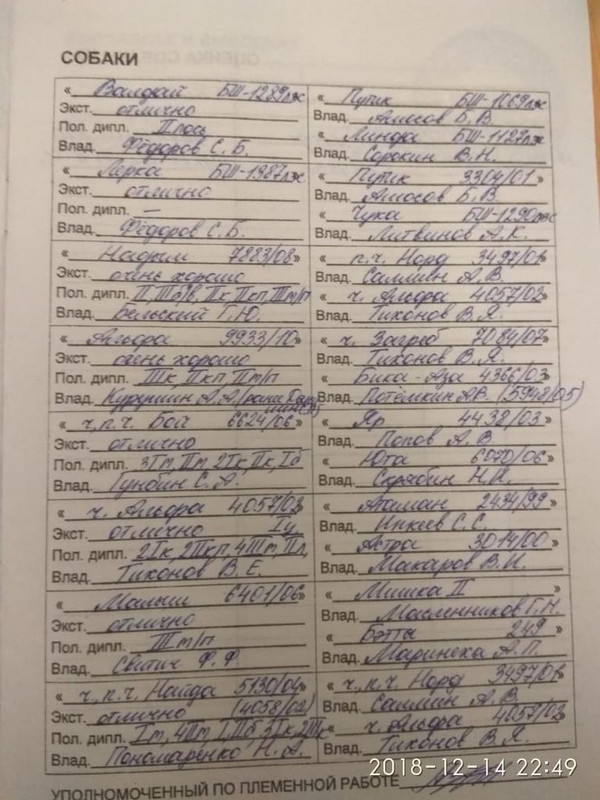 СОБАКИ
« Валдай БШ-1289лж
Экст. отлично
Пол. дипл. II лось
Влад. Фёдоров С.Б.
« Путик БШ-1069лж
Влад. Амосов Б.В.
« Линда БШ-1127лж
Влад. Сорокин В.Н.
« Лерка БШ-1387лж
Экст. отлично
Пол. дипл. —
Влад. Фёдоров С.Б.
« Путик 3304/01»
Влад. Амосов Б.В.
« Чука БШ-1290лж
Влад. Литвинов А.К.
« 7883/08»
Экст. очень хорошо
Пол. дипл. II, IIк, IIкп, IIIт/п
Влад. Бельский Г.Ю.
« п.ч. Норд 3497/01»
Влад. Саммин А.В.
« ч. Альфа 4057/02»
Влад. Тихонов В.Я.
« Альфа 9933/10»
Экст. очень хорошо
Пол. дипл. IIIк, IIкп, IIт/п
Влад. А.А.
« ч. Заграб 7084/07»
Влад. Тихонов В.Я.
« Бика-Аза 4366/03»
Влад. Потёмкин А.В. (5948/05)
« ч,п.ч. Бой 6624/06»
Экст. отлично
Пол. дипл. 3Iт, IIт, 2Iк, IIк, Iб
Влад. Гунбин С.А.
« Яр 4438/03»
Влад. Попов А.В.
« Юта 6070/06»
Влад. Скрябин Н.И.
« ч. Альфа 4057/02»
Экст. отлично
Пол. дипл. 2Iк, 2IIкп, 4IIIт,
Влад. Тихонов В.Е.
« Атаман 2434/99»
Влад. Инкиев С.С.
« Астра 3014/00»
Влад. Макаров В.И.
« Малыш 6401/06»
Экст. отлично
Пол. дипл. IIIт/п
Влад. Свитич Ф.Ф.
« Мишка II »
Влад. Масленников Г.Н.
« Бэтты 249 »
Влад. Маринека А.П.
« ч,п.ч. Найда 5130/04»
Экст. отлично (4058/02)
Пол. дипл. Iт, 4IIт,
Влад. Пономаренко Н.А.
« ч,п.ч. Норд 3497/01»
Влад. Саммин А.В.
« ч. Альфа 4057/02»
Влад. Тихонов В.Я.
УПОЛНОМОЧЕННЫЙ ПО ПЛЕМЕННОЙ РАБОТЕ
2018-12-14 22:49